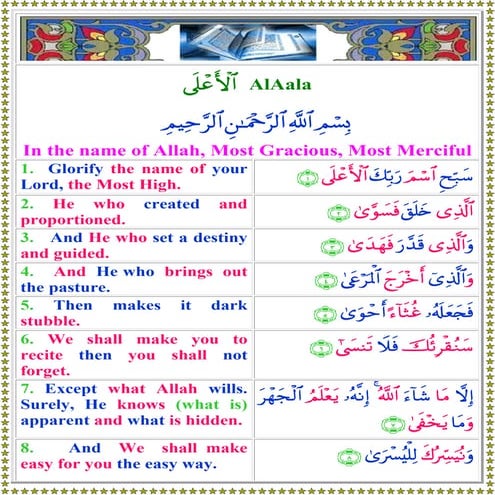 الْأَعْلَى AlAala
بِسْمِ اللَّهِ الرَّحْمَٰنِ الرَّحِيمِ
In the name of Allah, Most Gracious, Most Merciful
1. Glorify the name of your
Lord, the Most High.
سَبِّحِ اسْمَ رَبِّكَ الْأَعْلَى ١
2. He who created and
proportioned.
الَّذِي خَلَقَ فَسَوَّىٰ ٢
3. And He who set a destiny
and guided.
وَالَّذِي قَدَّرَ فَهَدَىٰ ٣
4. And He who brings out
the pasture.
وَالَّذِي أَخْرَجَ الْمَرْعَىٰ ٤
5. Then makes it dark
stubble.
فَجَعَلَهُ غُثَاءً أَحْوَىٰ ٥
6. We shall make you to
recite then you shall not
forget.
سَنُقْرِئُكَ فَلَا تَنسَىٰ ٦
7. Except what Allah wills.
Surely, He knows (what is)
apparent and what is hidden.
إِلَّا مَا شَاءَ اللَّهُ ۚ إِنَّهُ يَعْلَمُ الْجَهْرَ
وَمَا يَخْفَىٰ ٧
8. And We shall make
easy for you the easy way.
وَنُيَسِّرُكَ لِلْيُسْرَىٰ ٨